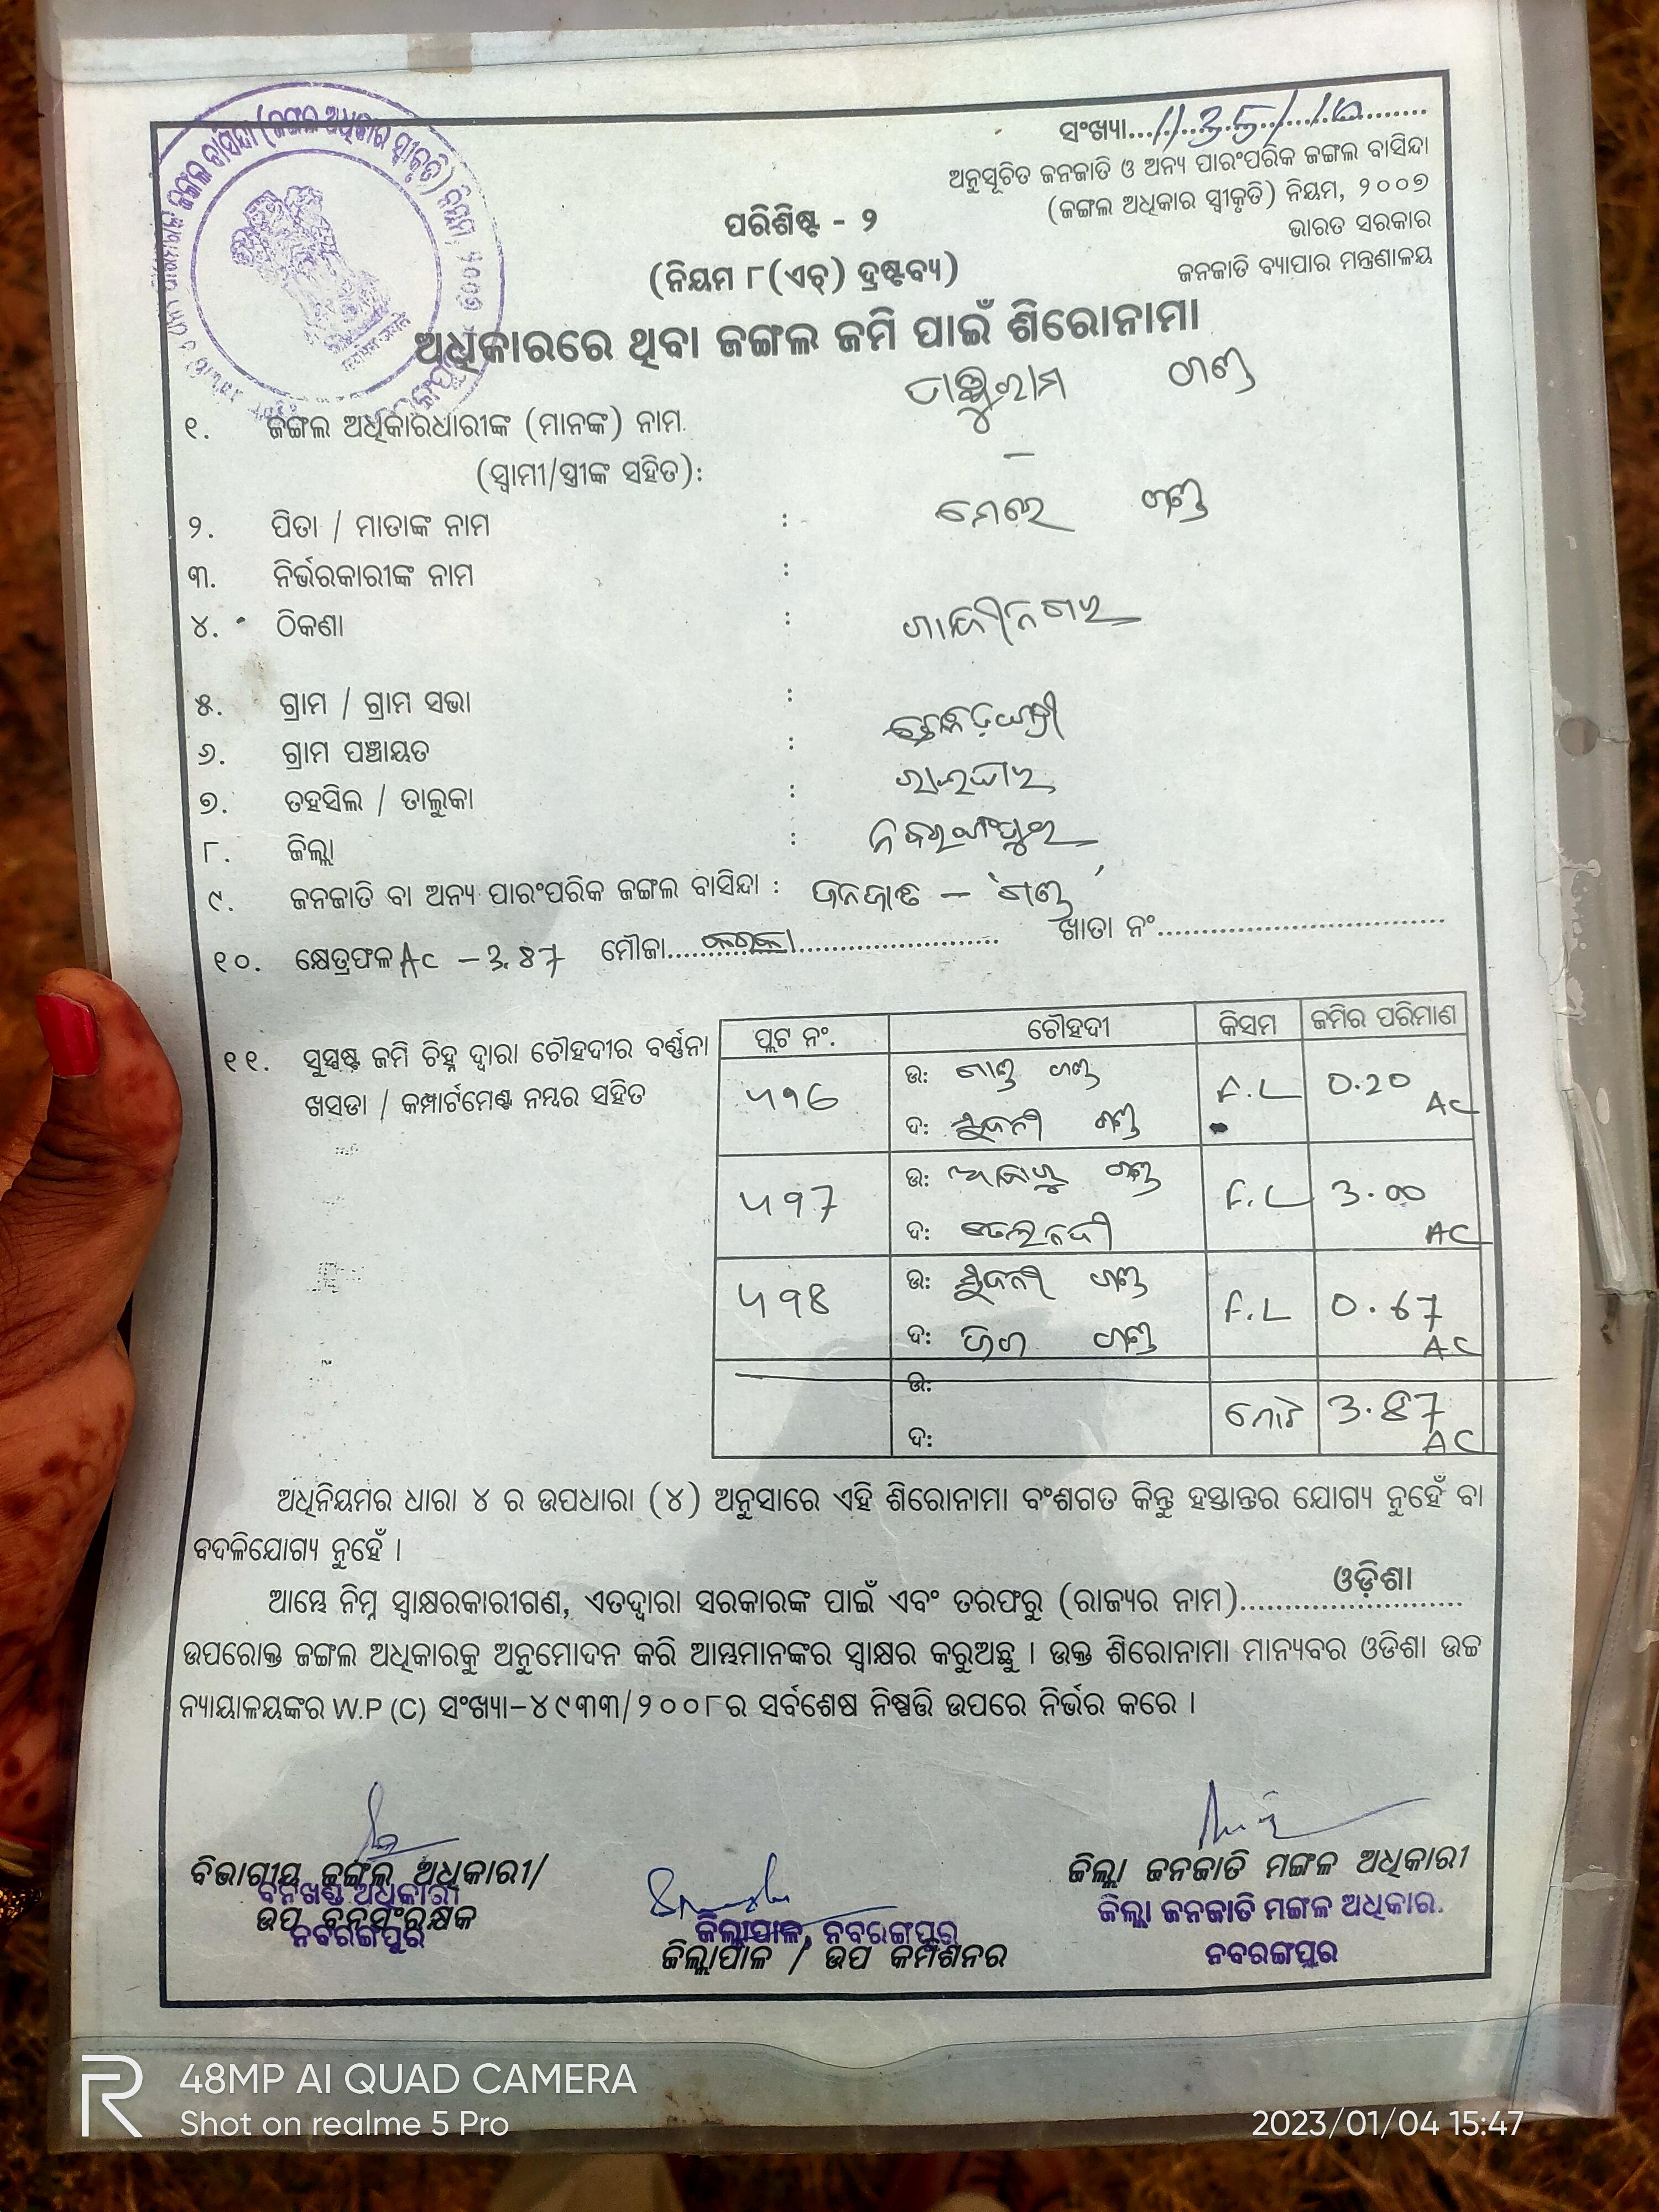 ସଂଖ୍ୟା...1135/12.......
ଅନୁସୂଚିତ ଜନଜାତି ଓ ଅନ୍ୟ ପାରଂପରିକ ଜଙ୍ଗଲ ବାସିନ୍ଦା
(ଜଙ୍ଗଲ ଅଧିକାର ସ୍ୱୀକୃତି) ନିୟମ, ୨୦୦୭
ଭାରତ ସରକାର
ଜନଜାତି ବ୍ୟାପାର ମନ୍ତ୍ରଣାଳୟ
ପରିଶିଷ୍ଟ - ୨
(ନିୟମ ୮(ଏଚ୍) ଦ୍ରଷ୍ଟବ୍ୟ)
ଅଧିକାରରେ ଥିବା ଜଙ୍ଗଲ ଜମି ପାଇଁ ଶିରୋନାମା
୧. ଜଙ୍ଗଲ ଅଧିକାରଧାରୀଙ୍କ (ମାନଙ୍କ) ନାମ ଗଣ୍ଡ
(ସ୍ୱାମୀ/ସ୍ତ୍ରୀଙ୍କ ସହିତ): –
୨. ପିତା / ମାତାଙ୍କ ନାମ : ଗଣ୍ଡ
୩. ନିର୍ଭରକାରୀଙ୍କ ନାମ :
୪. ଠିକଣା : ଗାନ୍ଧୀନଗର
୫. ଗ୍ରାମ / ଗ୍ରାମ ସଭା :
୬. ଗ୍ରାମ ପଞ୍ଚାୟତ :
୭. ତହସିଲ / ତାଲୁକା : ରାଇଘର
୮. ଜିଲ୍ଲା : ନବରଙ୍ଗପୁର
୯. ଜନଜାତି ବା ଅନ୍ୟ ପାରଂପରିକ ଜଙ୍ଗଲ ବାସିନ୍ଦା : ଜନଜାତି – 'ଗଣ୍ଡ'
୧୦. କ୍ଷେତ୍ରଫଳ AC – 3.87 ମୌଜା............ ଖାତା ନଂ............
୧୧. ସୁସ୍ପଷ୍ଟ ଜମି ଚିହ୍ନ ଦ୍ୱାରା ଚୌହଦୀର ବର୍ଣ୍ଣନା
ଖସଡା / କମ୍ପାର୍ଟମେଣ୍ଟ ନମ୍ବର ସହିତ
ପ୍ଲଟ ନଂ. ଚୌହଦୀ କିସମ ଜମିର ପରିମାଣ
ଉ: ଗଣ୍ଡ F.L 0.20 AC
ଦ: ଗଣ୍ଡ
ଉ: ଗଣ୍ଡ F.L 3.00 AC
ଦ:
ଉ: ଗଣ୍ଡ F.L 0.67 AC
ଦ: ଗଣ୍ଡ
ଉ: ମୋଟ 3.87 AC
ଦ:
ଅଧିନିୟମର ଧାରା ୪ ର ଉପଧାରା (୪) ଅନୁସାରେ ଏହି ଶିରୋନାମା ବଂଶଗତ କିନ୍ତୁ ହସ୍ତାନ୍ତର ଯୋଗ୍ୟ ନୁହେଁ ବା
ବଦଳିଯୋଗ୍ୟ ନୁହେଁ ।
ଆମ୍ଭେ ନିମ୍ନ ସ୍ୱାକ୍ଷରକାରୀଗଣ, ଏତଦ୍ୱାରା ସରକାରଙ୍କ ପାଇଁ ଏବଂ ତରଫରୁ (ରାଜ୍ୟର ନାମ)....ଓଡ଼ିଶା....
ଉପରୋକ୍ତ ଜଙ୍ଗଲ ଅଧିକାରକୁ ଅନୁମୋଦନ କରି ଆମ୍ଭମାନଙ୍କର ସ୍ୱାକ୍ଷର କରୁଅଛୁ । ଉକ୍ତ ଶିରୋନାମା ମାନ୍ୟବର ଓଡିଶା ଉଚ୍ଚ
ନ୍ୟାୟାଳୟଙ୍କର W.P (C) ସଂଖ୍ୟା–୪୯୩୩/୨୦୦୮ର ସର୍ବଶେଷ ନିଷ୍ପତ୍ତି ଉପରେ ନିର୍ଭର କରେ ।
ବିଭାଗୀୟ ଜଙ୍ଗଲ ଅଧିକାରୀ/
ବନଖଣ୍ଡ ଅଧିକାରୀ
ଉପ ବନସଂରକ୍ଷକ
ନବରଙ୍ଗପୁର
ଜିଲ୍ଲାପାଳ, ନବରଙ୍ଗପୁର
ଜିଲ୍ଲାପାଳ / ଉପ କମିଶନର
ଜିଲ୍ଲା ଜନଜାତି ମଙ୍ଗଳ ଅଧିକାରୀ
ଜିଲ୍ଲା ଜନଜାତି ମଙ୍ଗଳ ଅଧିକାର.
ନବରଙ୍ଗପୁର
48MP AI QUAD CAMERA
Shot on realme 5 Pro
2023/01/04 15:47